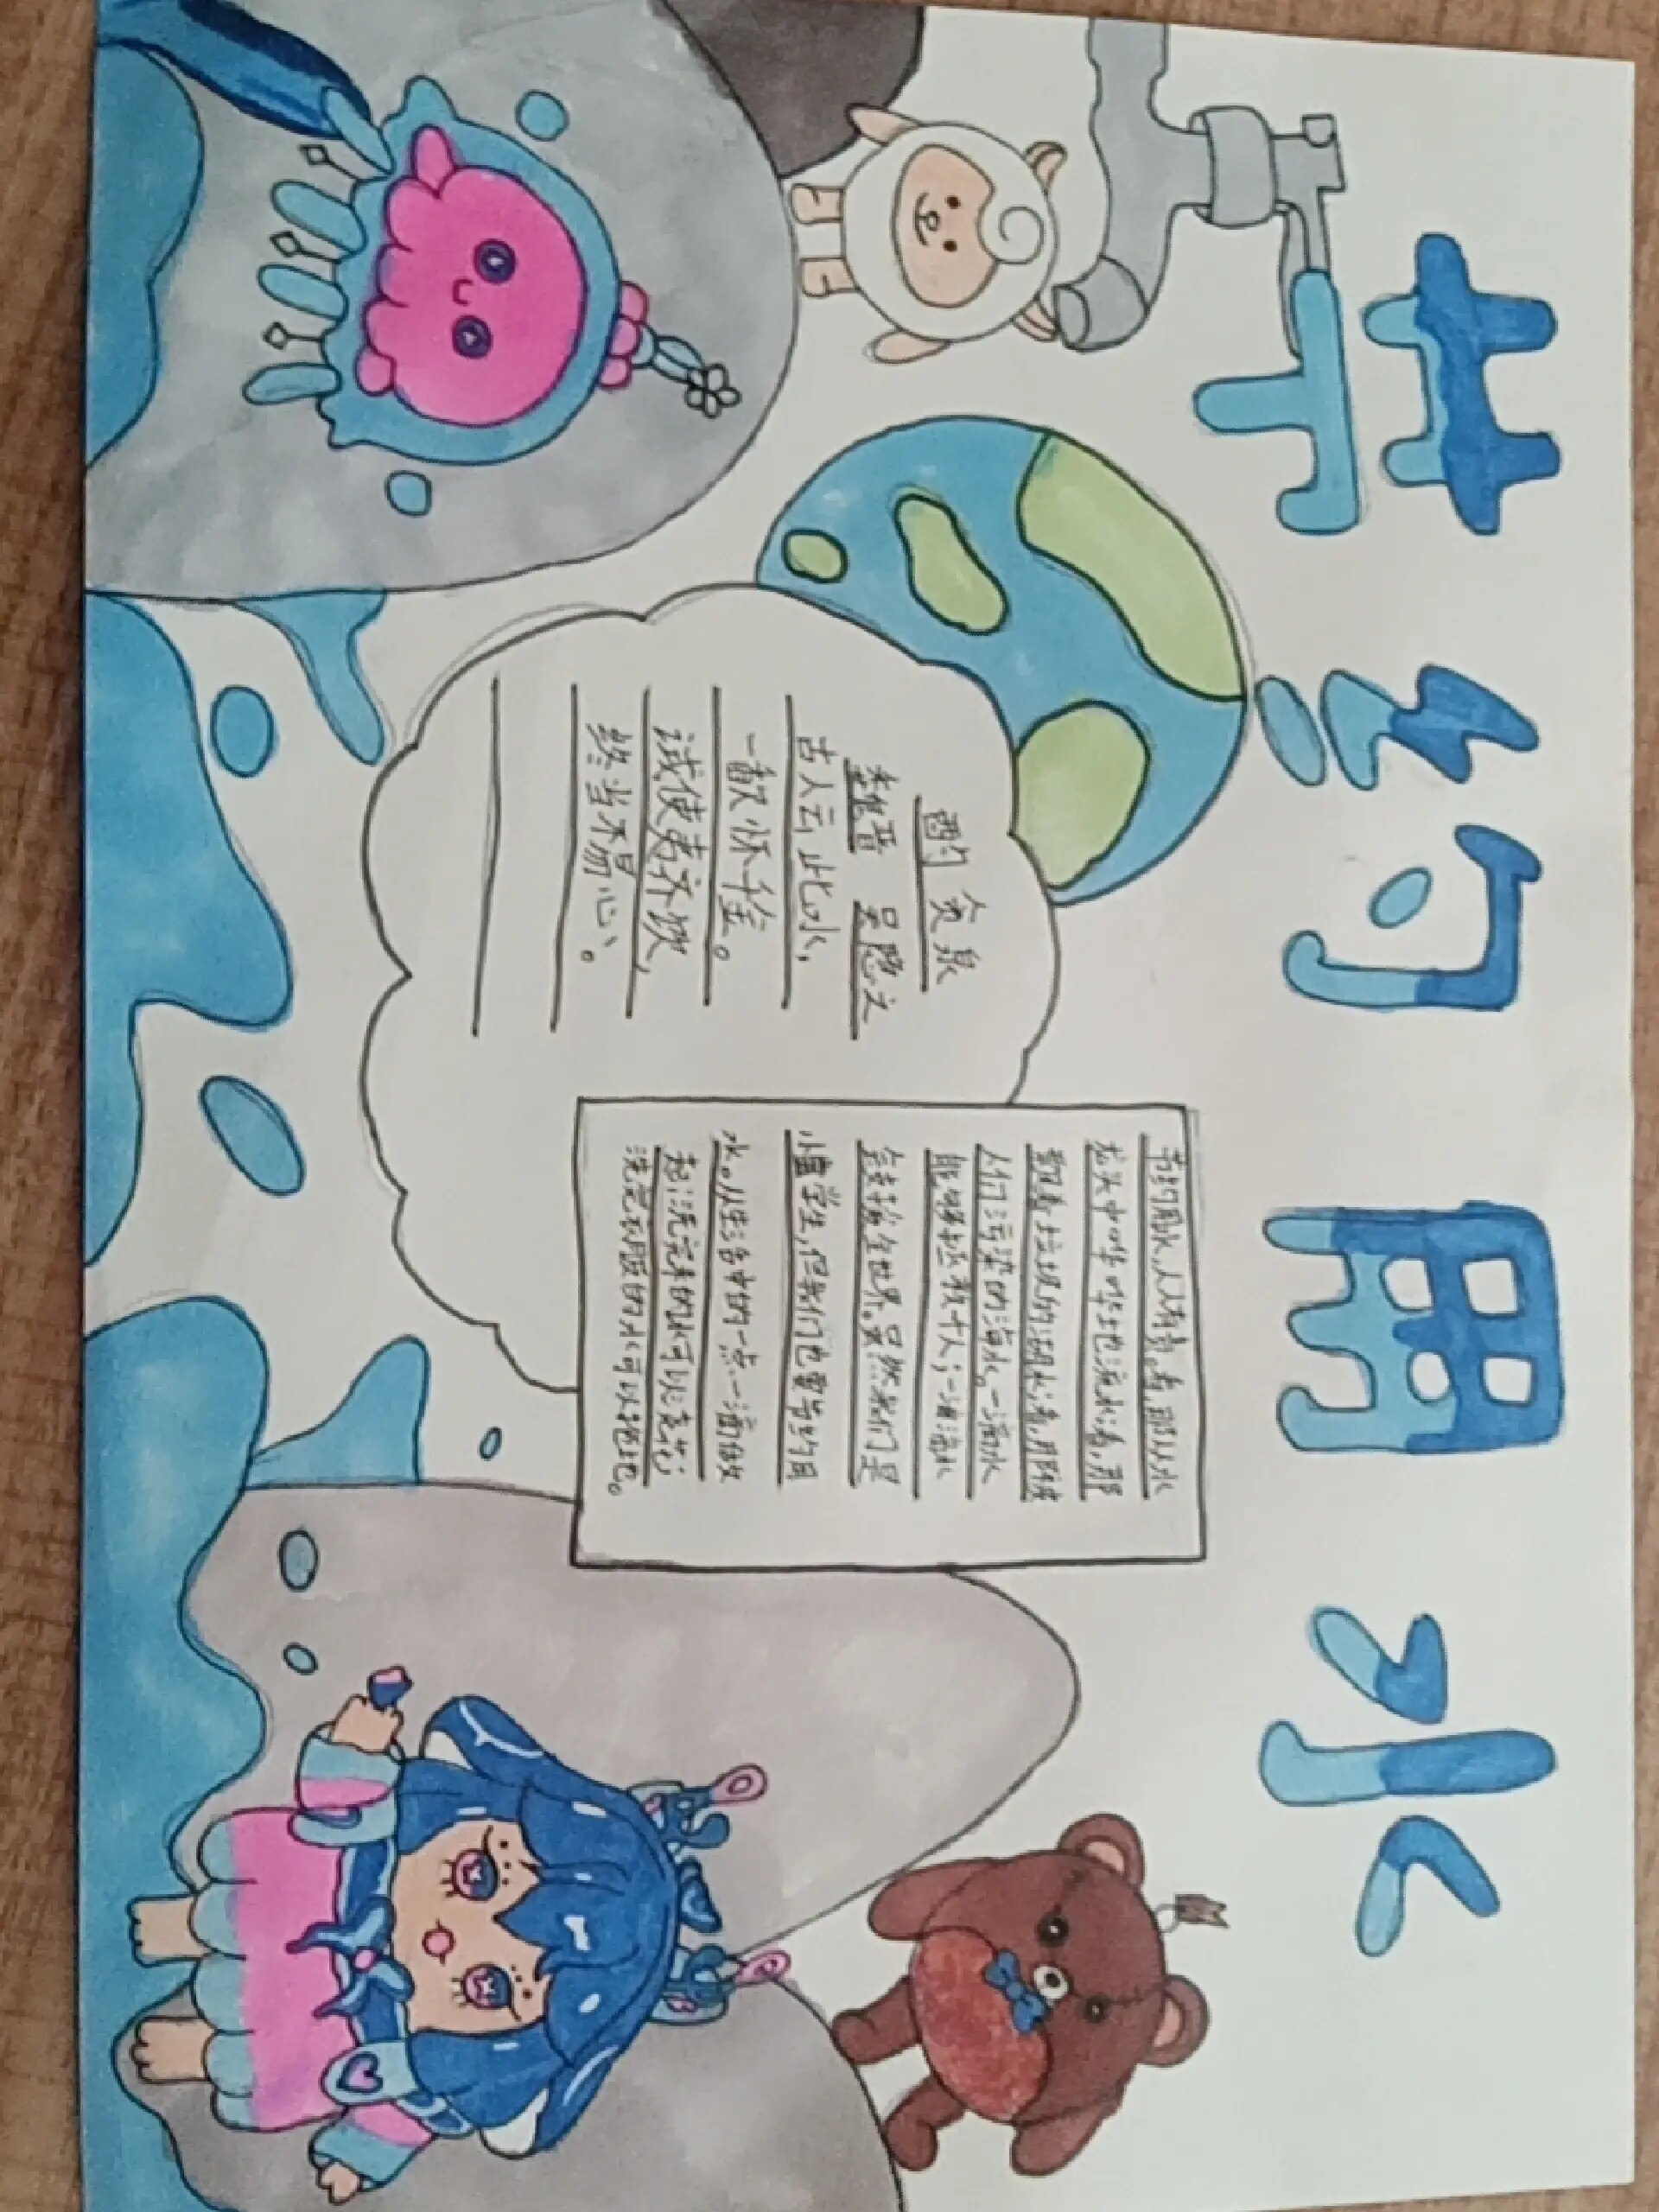 节约用水
酌贪泉
魏晋 吴隐之
古人云此水，
一歃怀千金。
试使夷齐饮，
终当不易心。
节约用水，人人有责。看，那从水
龙头中哗哗地流水着，那
飘着垃圾的湖水着，那被
人们污染的海水。一滴水
能够拯救个人；一滴滴水
会支撑全世界。虽然我们是
小学生，但我们也要节约用
水。从生活中的一点一滴做
起：洗完手的水可以浇花；
洗完衣服的水可以拖地。